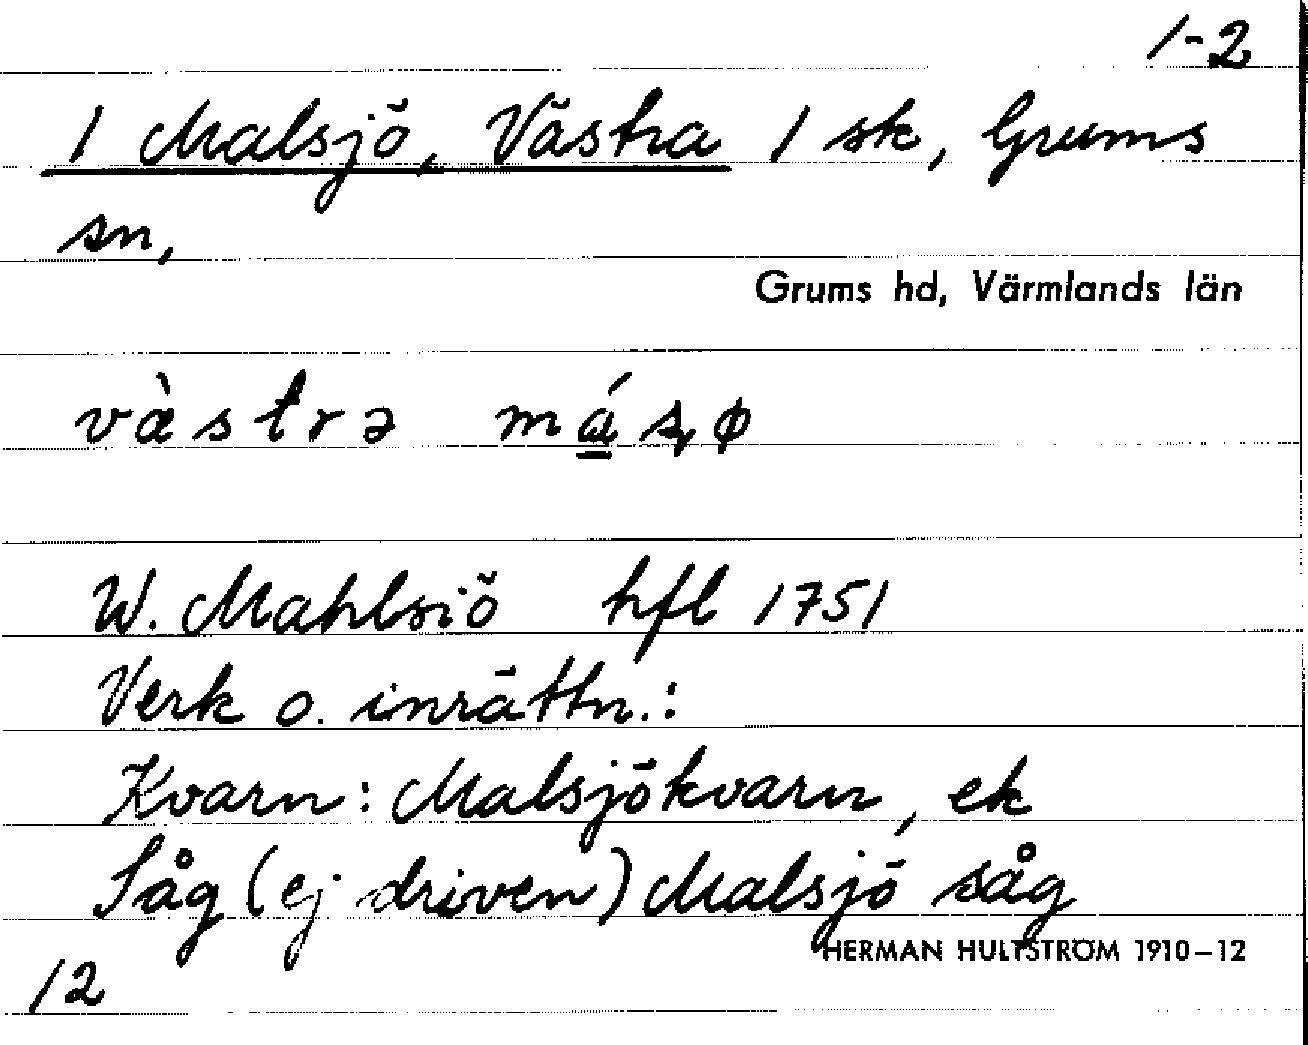 1-2
1 Malsjö, Västra 1 sk, Grums
sn,
Grums hd, Värmlands län
vàstrə má̲ʂø
W. Mahlsiö hfl 1751
Verk o. inrättn.:
Kvarn: Malsjökvarn, ek
Såg (ej driven) Malsjö såg
HERMAN HULTSTRÖM 1910–12
12